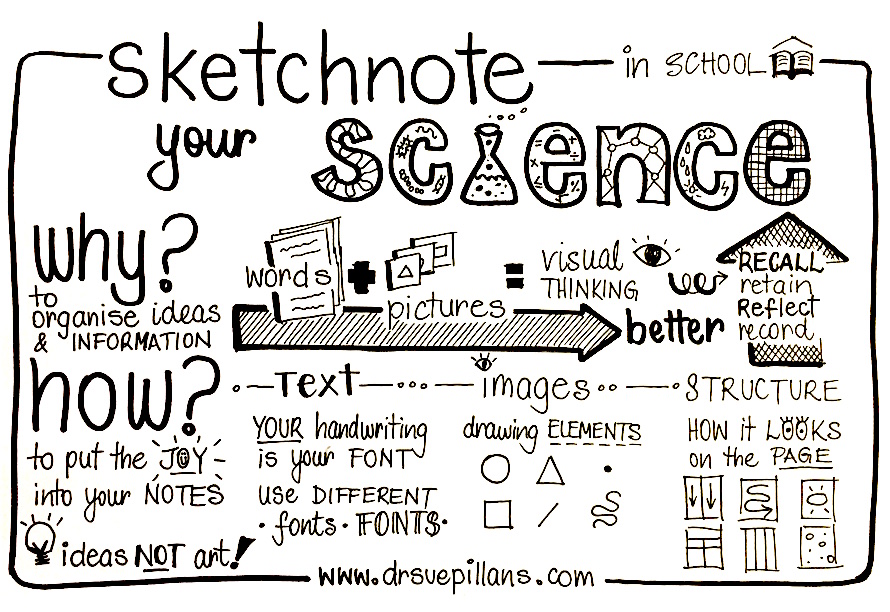 sketchnote
in SCHOOL
your science
why?
to
organise ideas
& INFORMATION
words + pictures = visual
THINKING
better
RECALL
retain
Reflect
record
how?
to put the JOY
into your NOTES
ideas NOT art!
Text
YOUR handwriting
is your FONT
use DIFFERENT
· fonts · FONTS ·
images
drawing ELEMENTS
STRUCTURE
HOW it LOOKS
on the PAGE
www.drsuepillans.com